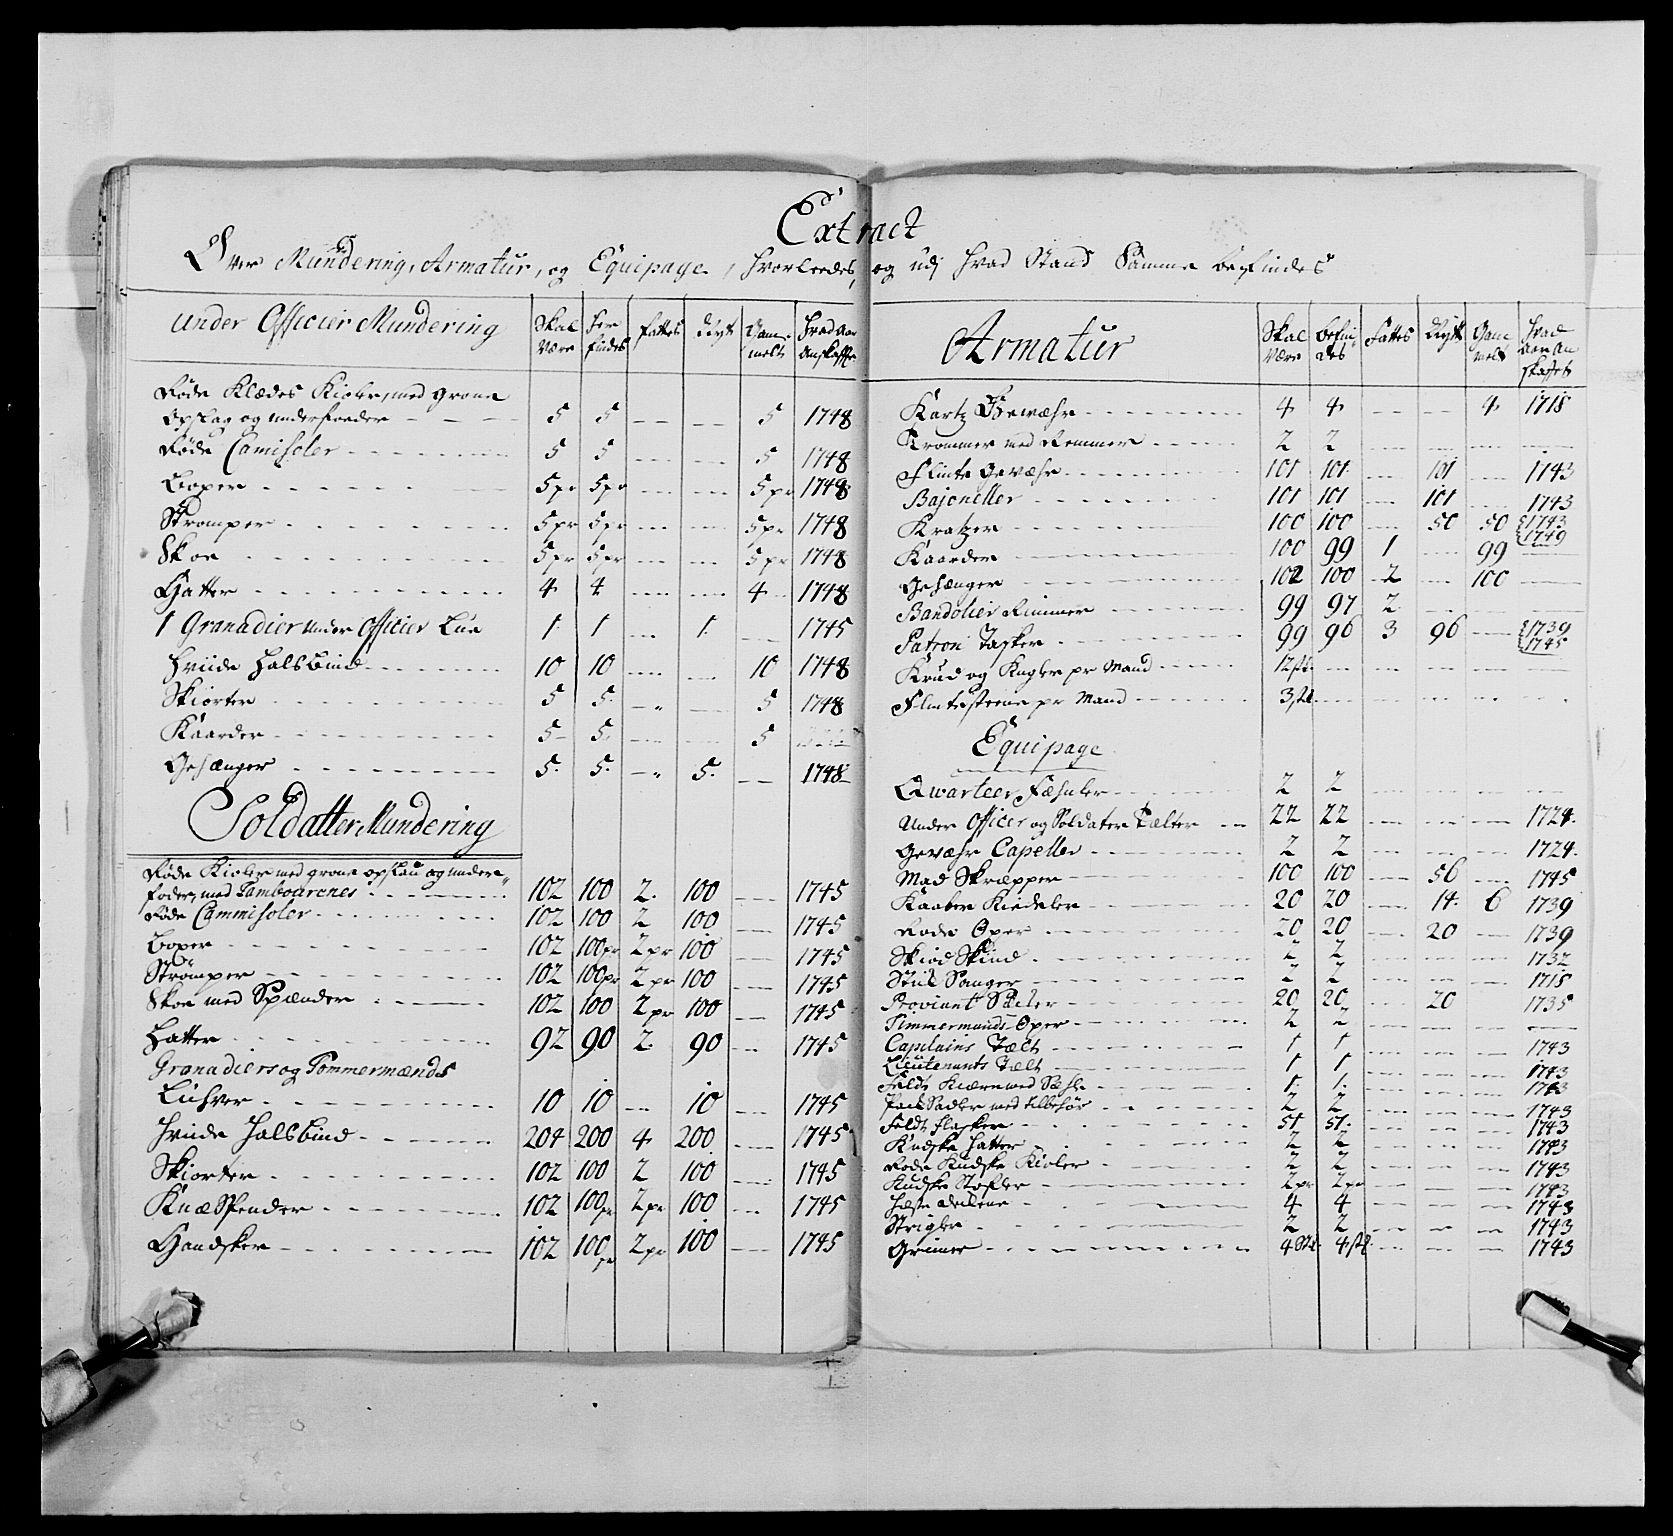 Extract
Over Mundering, Armatur, og Equipage, hvorleedes, og udj hvad Stand Samme befindes
Under Officier Mundering | Skal være | Her findes | fattes | Dygt | Gam- melt | hvad aar anskaffet
Røde Klædes Kioler, med grøne
Opslag og underfoeder | 5 | 5 | — | — | 5 | 1748
Røde Camisoler | 5 | 5 | — | — | 5 | 1748
Boxer | 5 pr | 5 pr | — | — | 5 pr | 1748
Strømper | 5 pr | 5 pr | — | — | 5 pr | 1748
Skoe | 5 pr | 5 pr | — | — | 5 pr | 1748
Hatter | 4 | 4 | — | — | 4 | 1748
1 Granadier under Officier Lue | 1 | 1 | — | 1 | — | 1745
Hviide Halsbind | 10 | 10 | — | — | 10 | 1748
Skiorter | 5 | 5 | — | — | 5 | 1748
Kaarder | 5 | 5 | — | — | 5 | —
Gehænger | 5 | 5 | — | 5 | — | 1748
Soldatter Mundering
Røde Kioler med grøne opslau og under-
foder, med Tambourenes | 102 | 100 | 2 | 100 | — | 1745
Røde Cammisoler | 102 | 100 | 2 | 100 | — | 1745
Boxer | 102 | 100 pr | 2 pr | 100 | — | 1745
Strømper | 102 | 100 pr | 2 pr | 100 | — | 1745
Skoe med Spænder | 102 | 100 | 2 pr | 100 | — | 1745
Hatter | 92 | 90 | 2 | 90 | — | 1745
Granadiers og Tømmermænds
Luhver | 10 | 10 | — | 10 | — | 1745
Hviide Halsbind | 204 | 200 | 4 | 200 | — | 1745
Skiorter | 102 | 100 | 2 | 100 | — | 1745
Knæ Spender | 102 | 100 pr | 2 pr | 100 | — | 1745
Handsker | 102 | 100 pr | 2 pr | 100 | — | 1745
Armatur | Skal være | befin- des | Fattes | Dygt | Gam melt | hvad aar an skaffet
Kortz Gewæhr | 4 | 4 | — | — | 4 | 1718
Trommer med Remmer | 2 | 2 | — | — | — | —
Flinte Gevæhr | 101 | 101 | — | 101 | — | 1743
Bajonetter | 101 | 101 | — | 101 | — | 1743
Kratzer | 100 | 100 | — | 50 | 50 | 1743 1749
Kaarder | 100 | 99 | 1 | — | 99 | —
Gehænger | 102 | 100 | 2 | — | 100 | —
Bandolier Rimmer | 99 | 97 | 2 | — | — | —
Patron Tasker | 99 | 96 | 3 | 96 | — | 1739 1745
Krud og Kugler pr Mand | 12 st | — | — | — | — | —
Flintesteene pr Mand | 3 st | — | — | — | — | —
Equipage
Qvarteer Fæhnler | 2 | 2 | — | — | — | —
Under Officer og Soldater Tælter | 22 | 22 | — | — | — | 1724
Gevæhr Capeller | 2 | 2 | — | — | — | 1724
Mad Skræpper | 100 | 100 | — | 56 | — | 1745
Kaaber Kiedeler | 20 | 20 | — | 14 | 6 | 1739
Røde Øxer | 20 | 20 | — | 20 | — | 1739
Skiød Skind | 2 | 2 | — | — | — | 1732
Stik Sauger | 2 | 2 | — | — | — | 1718
Proviant Sæcker | 20 | 20 | — | 20 | — | 1735
Timmermands Øxer | 2 | 2 | — | — | — | —
Capitains Tælt | 1 | 1 | — | — | — | 1743
Lieutenants Tælt | 1 | 1 | — | — | — | 1743
Feldt Kiærre med | 1 | 1 | — | — | — | 1743
Pack Sadler med tilbehør | 2 | 2 | — | — | — | 1743
Feldt flasker | 51 | 51 | — | — | — | 1743
Kudske Hatter | 2 | 2 | — | — | — | 1743
Røde Kudske Kioler | 2 | 2 | — | — | — | 1743
Kudske Støfler | 2 pr | 2 pr | — | — | — | 1743
Heste | 4 | 4 | — | — | — | 1743
Strigler | 2 | 2 | — | — | — | 1743
Grimer | 4 st | 4 st | — | — | — | 1743